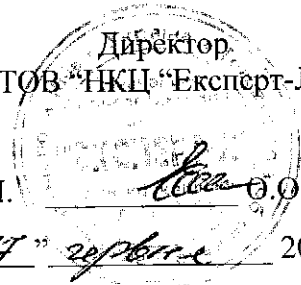 Директор
ТОВ “НКЦ “Експерт-Л
О.О
7 ” червня 20